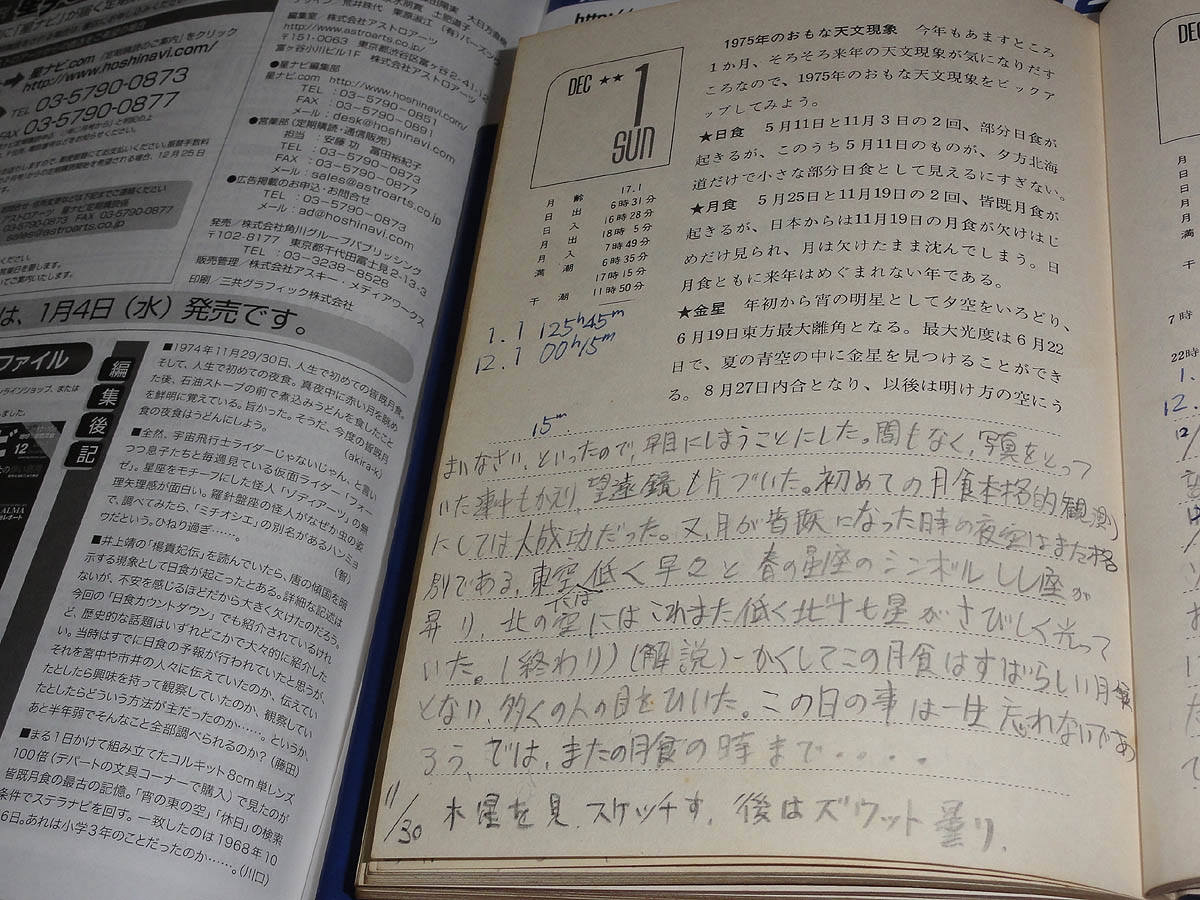 星ナビ.com「定期購読のご案内」をクリック
http://www.hoshinavi.com/
TEL 03-5790-0873
FAX 03-5790-0877
03-5790-0873 FAX 03-5790-0877
sales@astroarts.co.jp
編集室/株式会社アストロアーツ
http://www.astroarts.co.jp/
〒151-0063 東京都渋谷区富ヶ谷2-41-12
富ヶ谷小川ビル1F 株式会社アストロアーツ
●星ナビ編集部
星ナビ.com http://www.hoshinavi.com/
TEL :03-5790-0851
FAX :03-5790-0891
メール:desk@hoshinavi.com
●営業部(定期購読・通信販売)
担当 :安藤 功 冨田裕紀子
TEL :03-5790-0873
FAX :03-5790-0877
メール:sales@astroarts.co.jp
●広告掲載のお申込・お問合せ
TEL :03-5790-0873
メール:ad@hoshinavi.com
発売/株式会社角川グループパブリッシング
〒102-8177 東京都千代田区富士見2-13-3
TEL :03-3238-8528
販売管理/株式会社アスキー・メディアワークス
印刷/三共グラフィック株式会社
は、1月4日(水)発売です。
ファイル
編集後記
■1974年11月29/30日、人生で初めての皆既月食。
そして、人生で初めての夜食。真夜中に赤い月を眺め
た後、石油ストーブの前で煮込みうどんを食したこと
を鮮明に覚えている。旨かった。そうだ、今度の皆既月
食の夜食はうどんにしよう。 (akira-k)
■全然、宇宙飛行士ライダーじゃないじゃん、と言い
つつ息子たちと毎週見ている仮面ライダー「フォー
ゼ」。星座をモチーフにした怪人「ゾディアーツ」の無
理矢理感が面白い。羅針盤座の怪人がなぜか虫の姿
で、調べてみたら、「ミチオシエ」の別名があるハンミョ
ウだという。ひねり過ぎ……。 (智)
■井上靖の「楊貴妃伝」を読んでいたら、唐の傾国を暗
示する現象として日食が起こったとある。詳細な記述は
ないが、不安を感じるほどだから大きく欠けたのだろう。
今回の「日食カウントダウン」でも紹介されているけれ
ど、歴史的な話題はいずれどこかで大々的に紹介した
い。当時はすでに日食の予報が行われていたと思うが、
それを宮中や市井の人々に伝えていたのか、伝えてい
たとしたら興味を持って観察していたのか、観察してい
たとしたらどういう方法が主だったのか……。というか、
あと半年弱でそんなこと全部調べられるのか? (藤田)
■まる1日かけて組み立てたコルキット8cm単レンズ
100倍(デパートの文具コーナーで購入)で見たのが
皆既月食の最古の記憶。「宵の東の空」「休日」の検索
条件でステラナビを回す。一致したのは1968年10
6日。あれは小学3年のことだったのか……。(川口)
DEC ★★ 1
SUN
月齢 17.1
日出 6時31分
日入 16時28分
月出 18時 5分
月入 7時49分
満潮 6時35分
17時15分
干潮 11時50分
1.1 125h45m
12.1 00h15m
15m
1975年のおもな天文現象 今年もあますところ
1か月、そろそろ来年の天文現象が気になりだす
ころなので、1975年のおもな天文現象をピックア
ップしてみよう。
★日食 5月11日と11月3日の2回、部分日食が
起きるが、このうち5月11日のものが、夕方北海
道だけで小さな部分日食として見えるにすぎない。
★月食 5月25日と11月19日の2回、皆既月食が
起きるが、日本からは11月19日の月食が欠けはじ
めだけ見られ、月は欠けたまま沈んでしまう。日
月食ともに来年はめぐまれない年である。
★金星 年初から宵の明星として夕空をいろどり、
6月19日東方最大離角となる。最大光度は6月22
日で、夏の青空の中に金星を見つけることができ
る。8月27日内合となり、以後は明け方の空にう
まいなさい、といったので、早目にしまうことにした。間もなく、写真をとって
いた事中もかえり、望遠鏡も片づいた。初めての月食本格的観測
にしては大成功だった。又、月が皆既になった時の夜空はまた格
別である。東空には低く早々と春の星座のシンボルしし座が
昇り、北の空にはこれまた低く北斗七星がさびしく光って
いた。(終わり)(解説)-かくしてこの月食はすばらしい月食
となり、多くの人の目をひいた。この日の事は一生忘れないであ
ろう。では、またの月食の時まで・・・・
11/30 木星を見、スケッチす。後はズウット曇り。
DEC
7時
22時